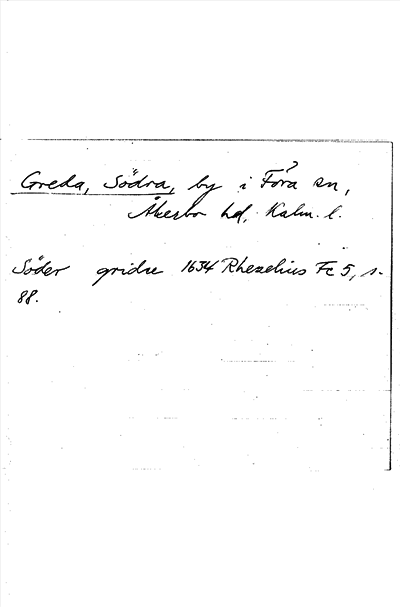 Greda, Södra, by i Föra sn,
Åkerbo hd, Kalm. l.
Söder gridre 1634 Rhezelius Fc 5, s.
88.